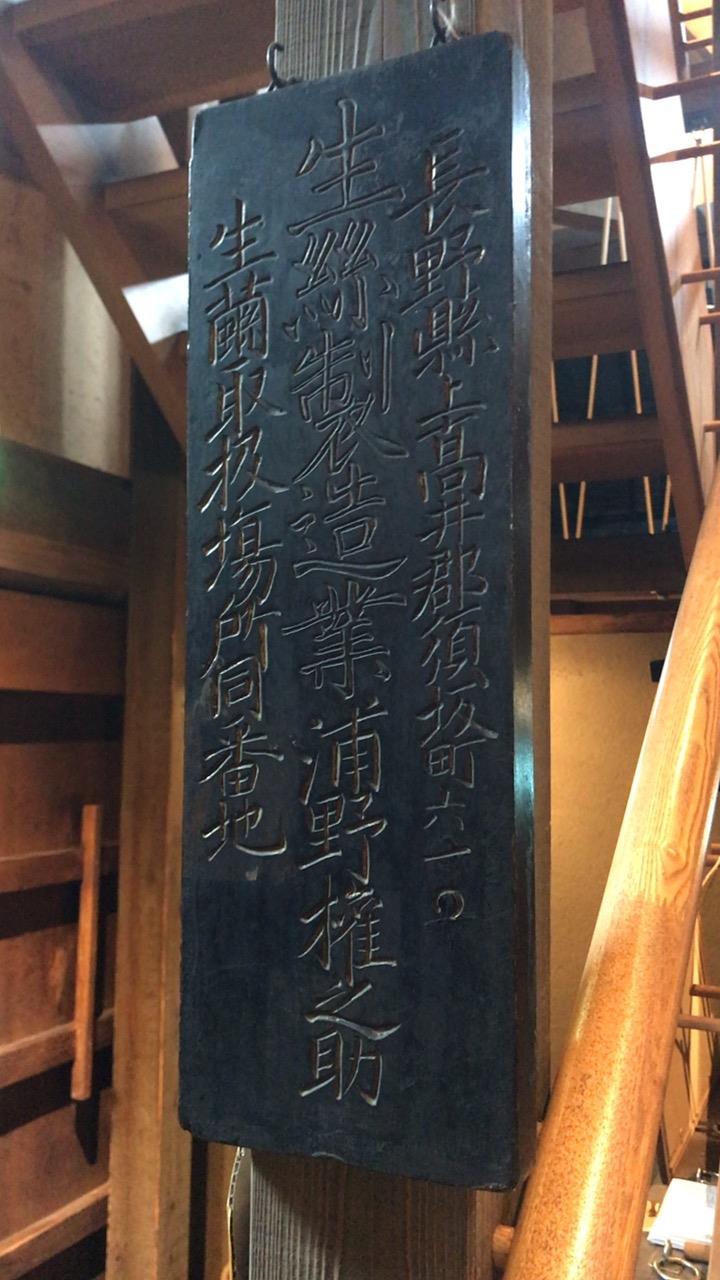 長野縣上高井郡須坂町六一の
生絲製造業浦野權之助
生繭取扱場所同番地